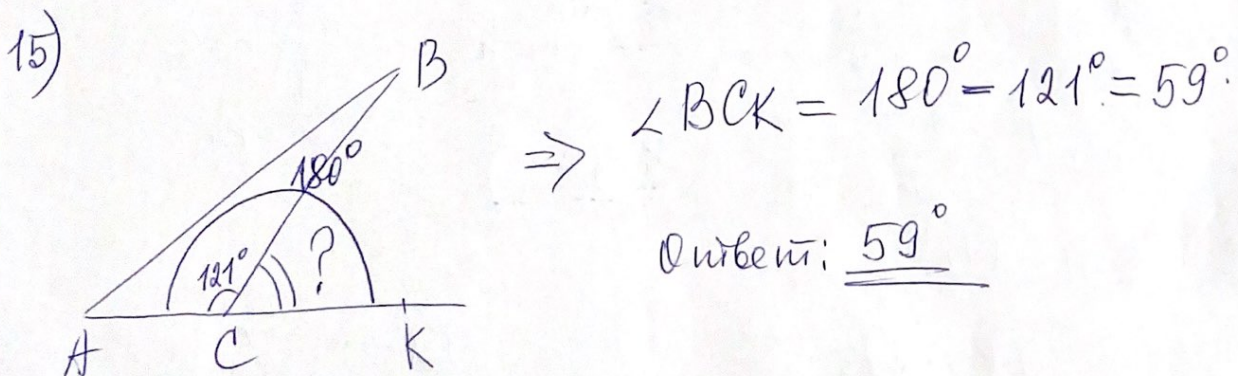 15)
B
180°
121°
?
A C K
⇒ ∠BCK = 180° - 121° = 59°.
Ответ: 59°